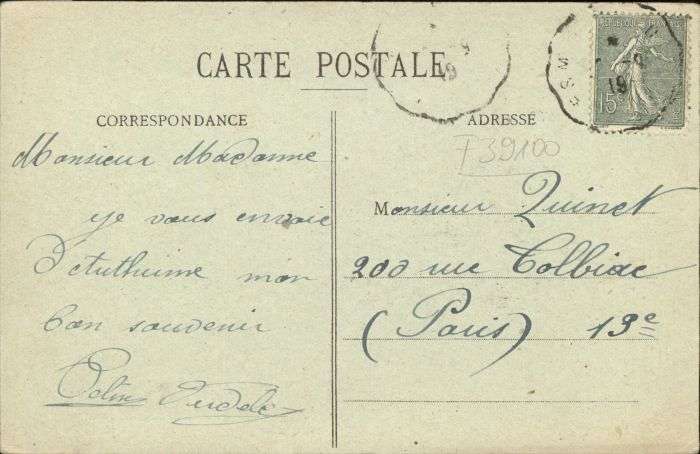 CARTE POSTALE
CORRESPONDANCE
Monsieur Madame
je vous envoie
mon
bon souvenir
ADRESSE
139100
Monsieur Quinet
200 rue Tolbiac
(Paris) 13e
REPUBLIQUE FRANÇAISE
15c
19
19